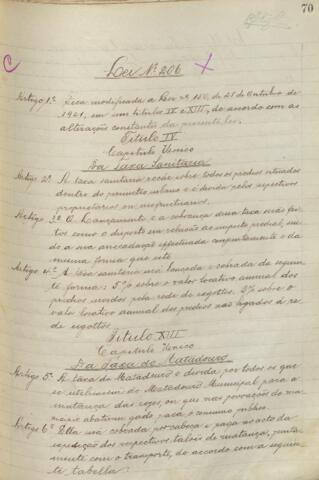 70
Lei Nº 206
Artigo 1º Fica modificada a Lei nº 160, de 21 de Outubro de
1921, em seus titulos IV e XIII, de accordo com as
alterações constantes da presente lei.
Titulo IV
Capitulo Unico
Da Taxa Sanitaria
Artigo 2º A taxa sanitaria recáe sobre todos os predios situados
dentro do perimetro urbano e é devida pelos respectivos
proprietarios ou usufructuarios.
Artigo 3º O lançamento e a cobrança dessa taxa serão fei-
tos como o disposto em relação ao imposto predial, sen-
do a sua arrecadação effectuada conjuntamente e da
mesma forma que este.
Artigo 4º A taxa sanitaria será lançada e cobrada da seguin-
te forma: 5% sobre o valor locativo annual dos
predios servidos pela rede de esgottos. 2% sobre o
valor locativo annual dos predios não ligados á re-
de de esgottos.
Titulo XIII
Capitulo Unico
Da Taxa de Matadouro
Artigo 5º A taxa de Matadouro é devida por todos os que
se utilisarem do Matadouro Municipal para a
matança das rezes, ou que nas povoações do mu-
nicipio abaterem gado para o consumo publico.
Artigo 6º Ella será cobrada por cabeça e paga no acto da
expedição dos respectivos talões de matança, junta-
mente com o transporte, de accordo com a seguin-
te tabella: